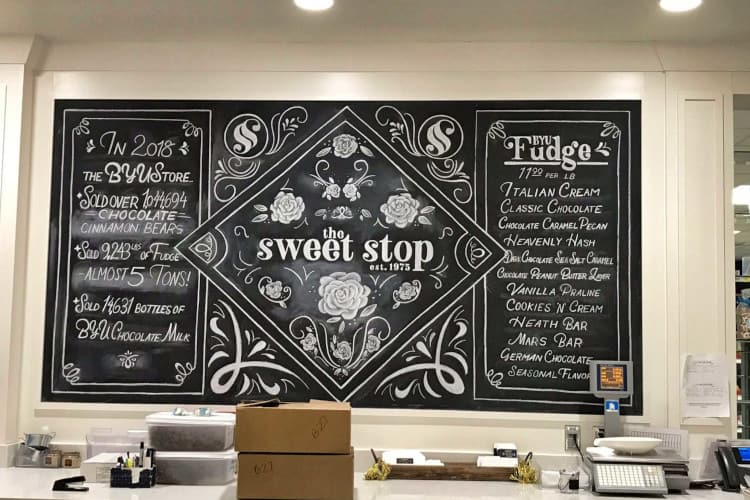 In 2018
the BYU Store
Sold over 1044,694
Chocolate
Cinnamon Bears
Sold 9,243 lbs of Fudge
Almost 5 Tons!
Sold 14631 bottles of
BYU Chocolate Milk
the
sweet stop
est. 1975
BYU
Fudge
11.00 per lb
Italian Cream
Classic Chocolate
Chocolate Caramel Pecan
Heavenly Hash
Dark Chocolate Sea Salt Caramel
Chocolate Peanut Butter Layer
Vanilla Praline
Cookies 'N' Cream
Heath Bar
Mars Bar
German Chocolate
Seasonal Flavor
627